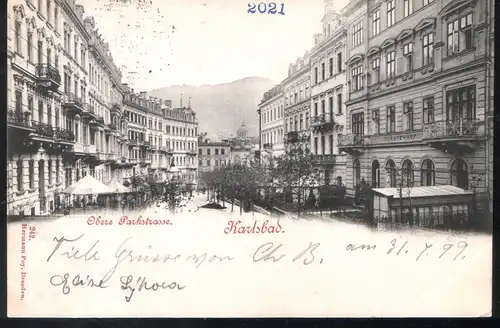 2021
Obere Parkstrasse.
Karlsbad.
242.
Hermann Poy, Dresden.
Viele Grüsse von Ch B. am 31.7.99